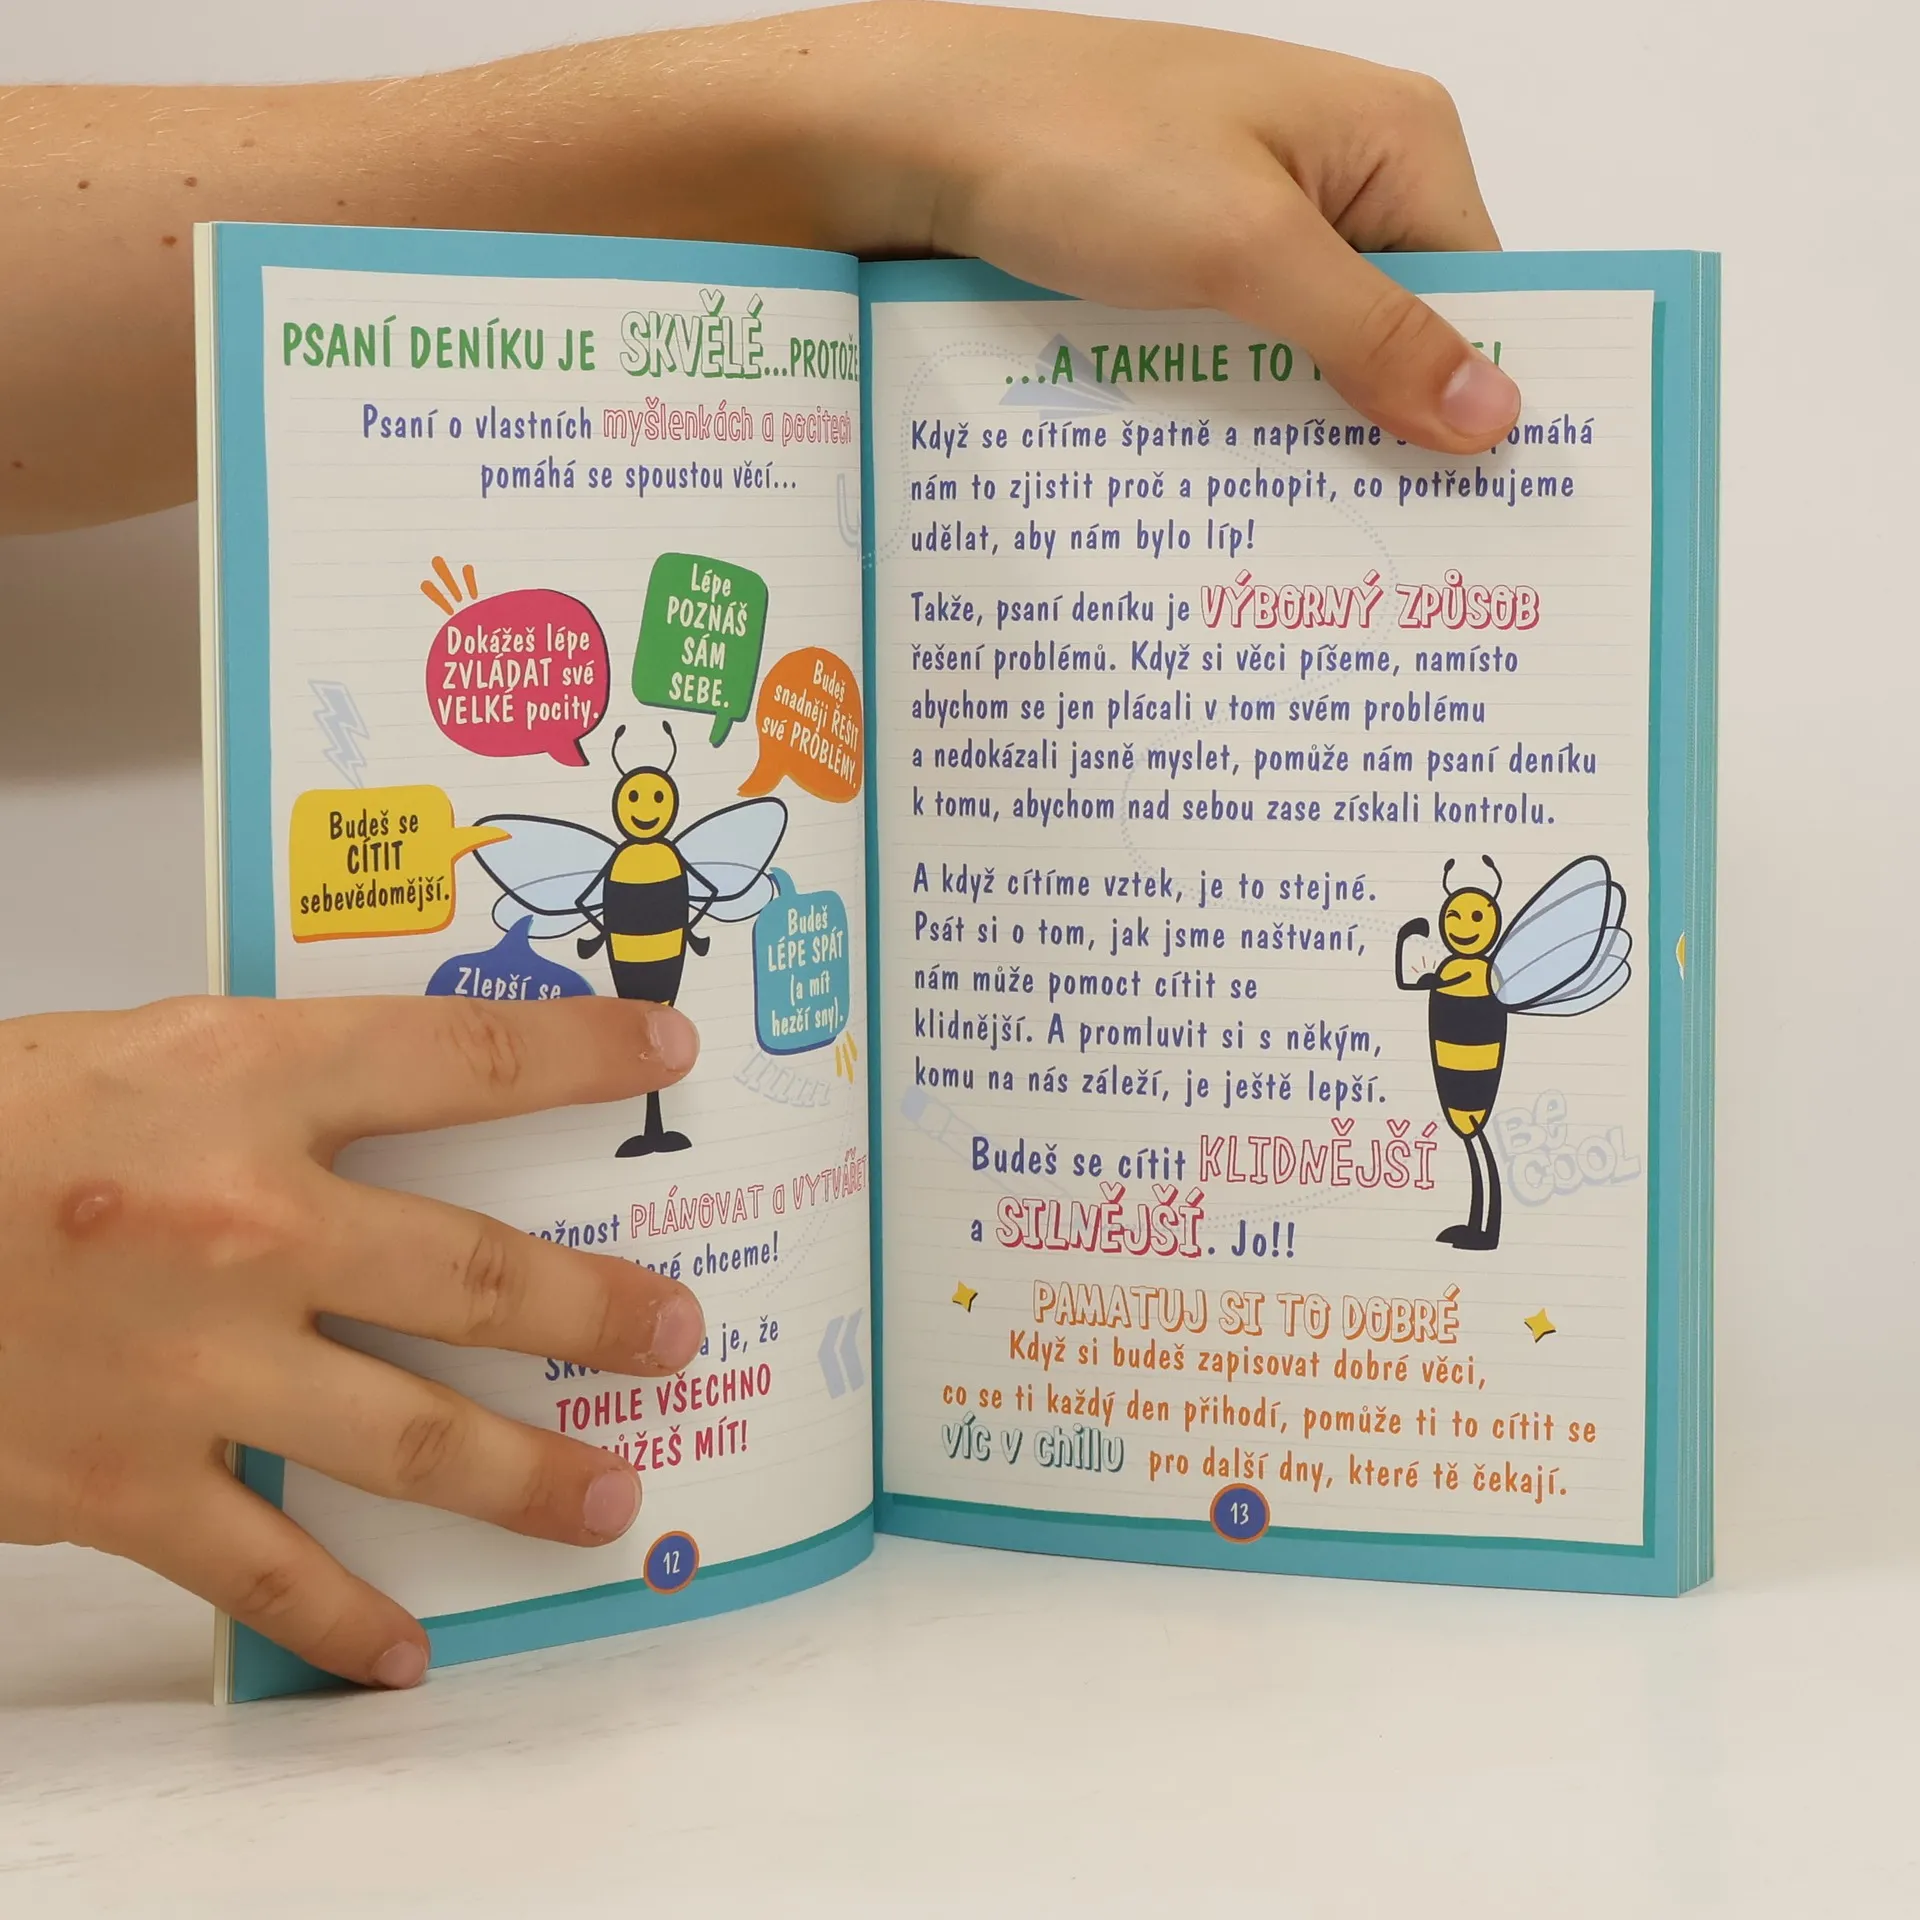 PSANÍ DENÍKU JE SKVĚLÉ...PROTOŽE
Psaní o vlastních myšlenkách a pocitech
pomáhá se spoustou věcí...
Dokážeš lépe
ZVLÁDAT své
VELKÉ pocity.
Lépe
POZNÁŠ
SÁM
SEBE.
Budeš
snadněji ŘEŠIT
své PROBLÉMY.
Budeš se
CÍTIT
sebevědomější.
Budeš
LÉPE SPÁT
(a mít
hezčí sny).
Zlepší se
PLÁNOVAT a VYTVÁŘET
chceme!
je, že
TOHLE VŠECHNO
MÍT!
12
...A TAKHLE TO
Když se cítíme špatně a napíšeme
nám to zjistit proč a pochopit, co potřebujeme
udělat, aby nám bylo líp!
Takže, psaní deníku je VÝBORNÝ ZPŮSOB
řešení problémů. Když si věci píšeme, namísto
abychom se jen plácali v tom svém problému
a nedokázali jasně myslet, pomůže nám psaní deníku
k tomu, abychom nad sebou zase získali kontrolu.
A když cítíme vztek, je to stejné.
Psát si o tom, jak jsme naštvaní,
nám může pomoct cítit se
klidnější. A promluvit si s někým,
komu na nás záleží, je ještě lepší.
Budeš se cítit KLIDNĚJŠÍ
a SILNĚJŠÍ. Jo!!
Be
COOL
PAMATUJ SI TO DOBRÉ
Když si budeš zapisovat dobré věci,
co se ti každý den přihodí, pomůže ti to cítit se
víc v chillu pro další dny, které tě čekají.
13